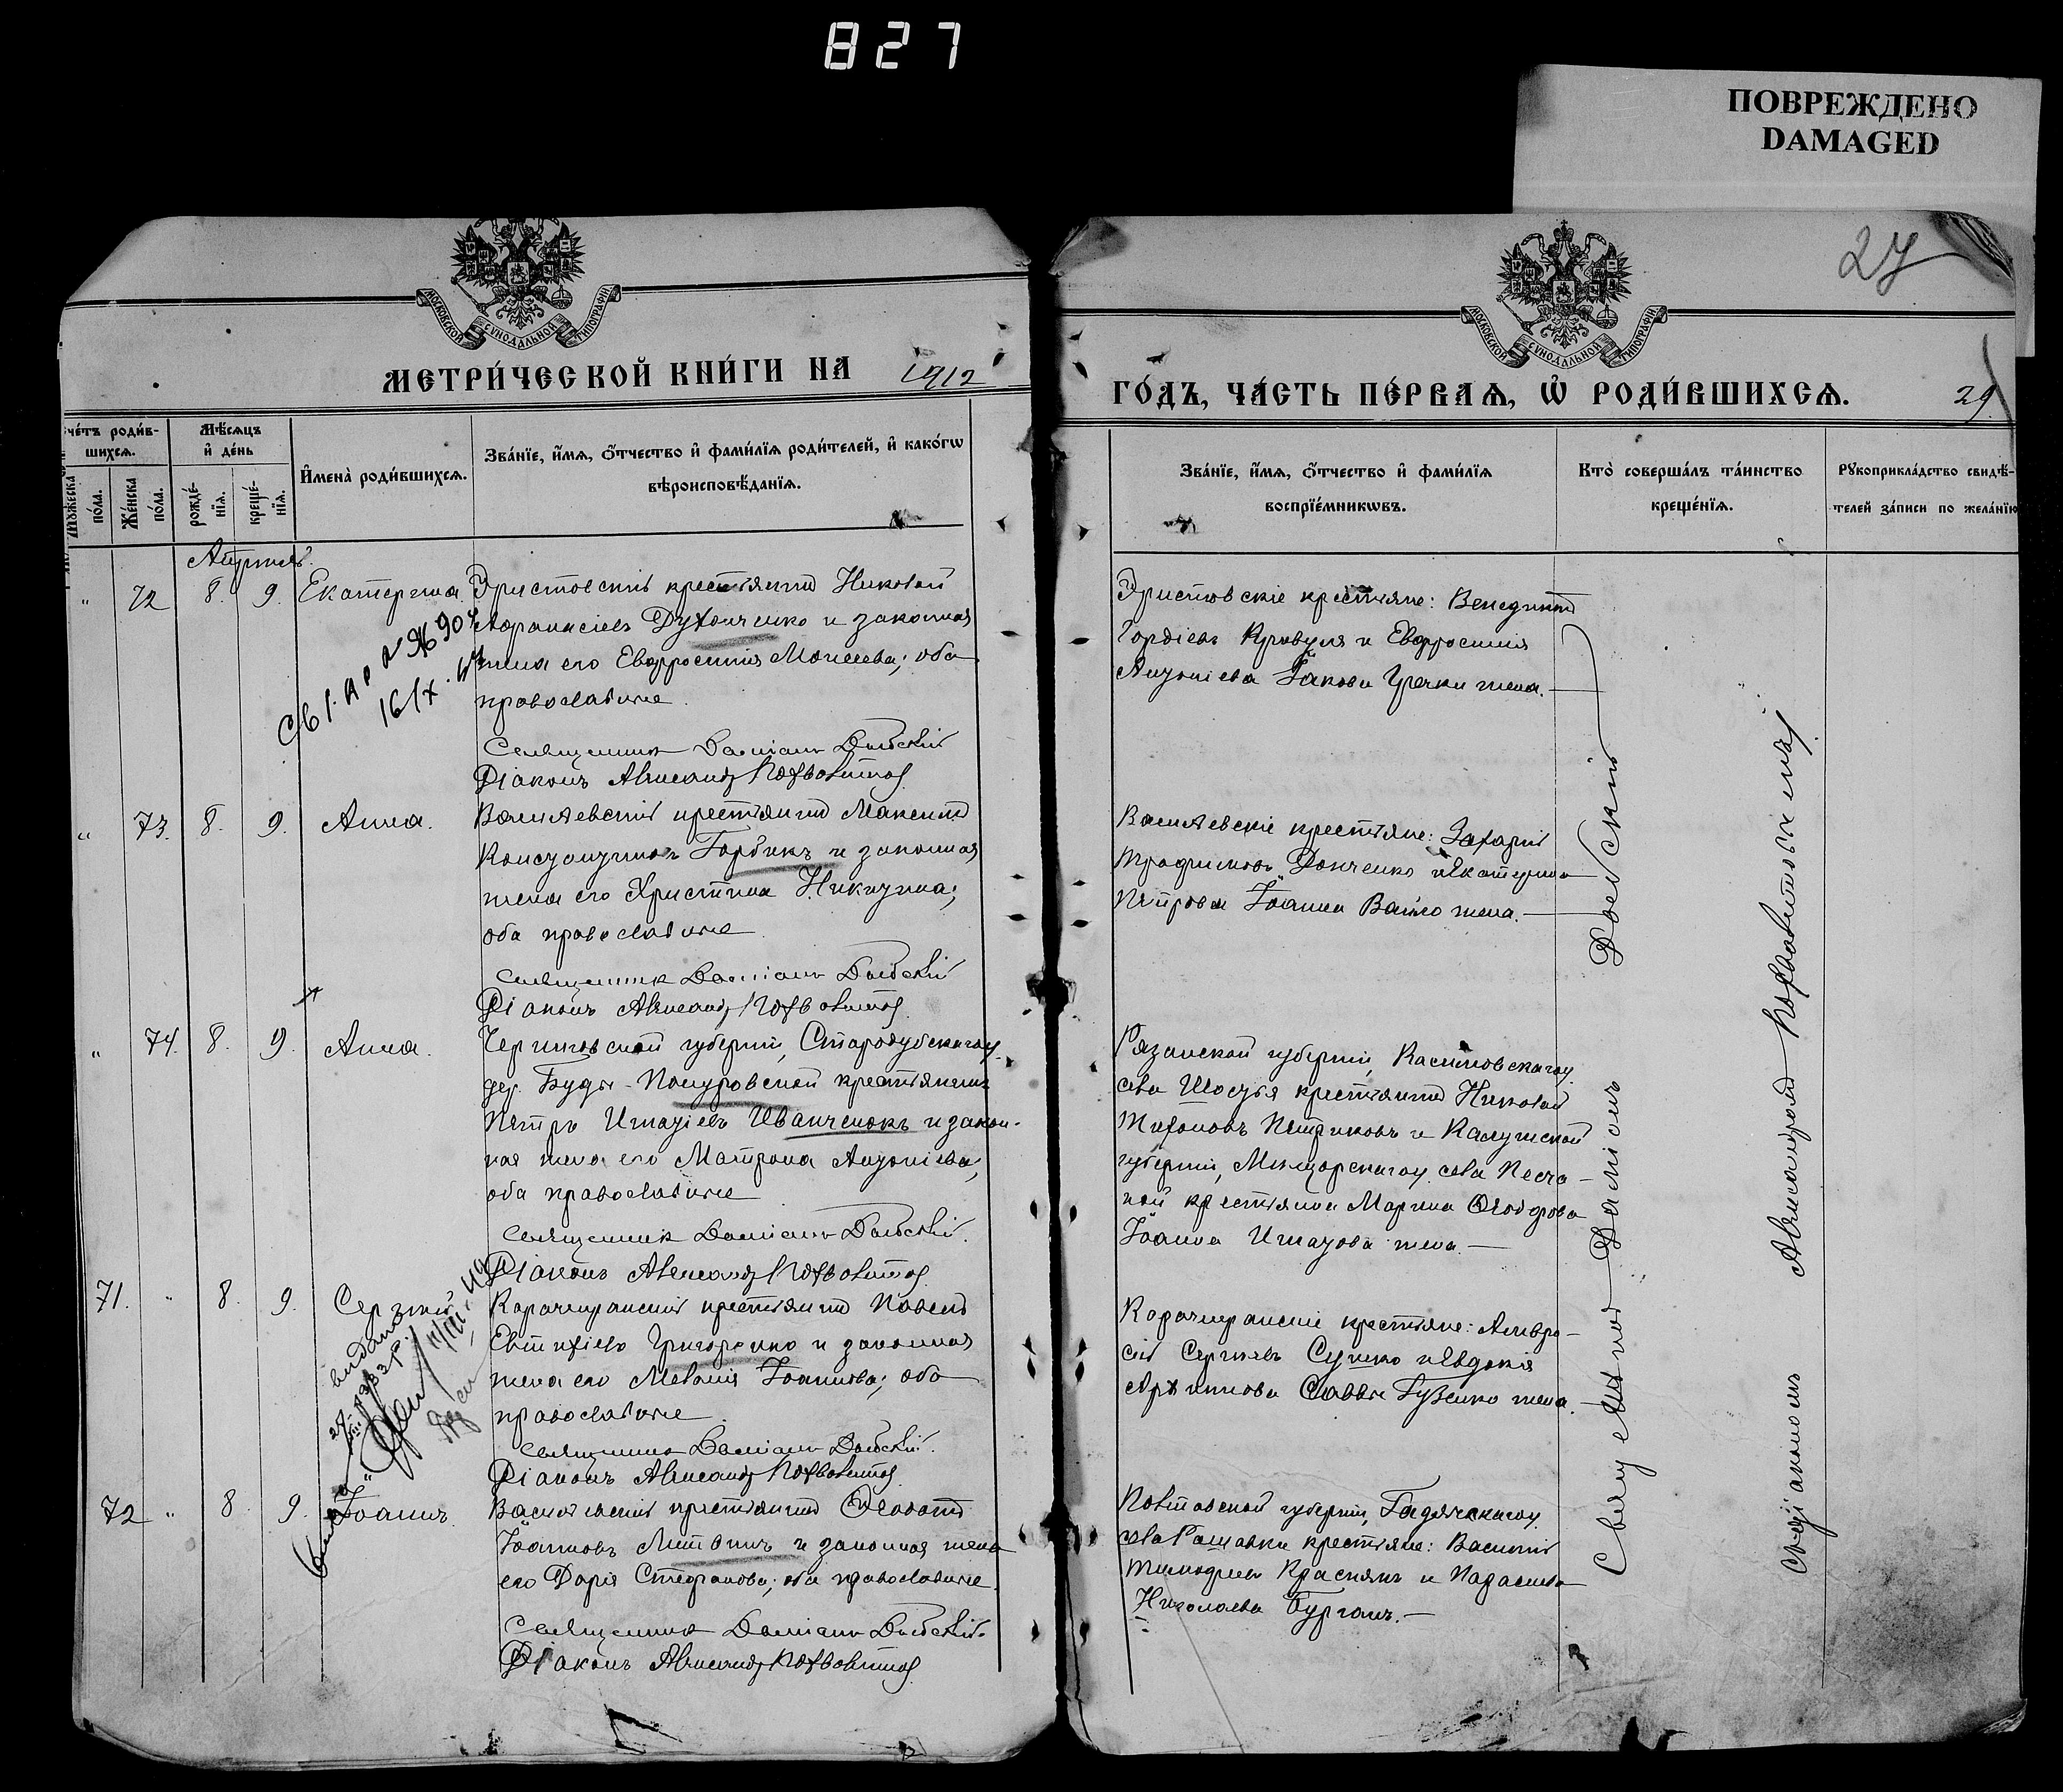 827
ПОВРЕЖДЕНО
DAMAGED
27
МОСКОВСКОЙ СѴНОДАЛЬНОЙ ТИПОГРАФІИ
МОСКОВСКОЙ СѴНОДАЛЬНОЙ ТИПОГРАФІИ
МЕТРИ́ЧЕСКОЙ КНИ́ГИ НА 1912
ГО́ДЪ, ЧА́СТЬ ПЕ́РВАѦ, Ѡ҆ РОДИ́ВШИХСѦ. 29.
че́тъ роди́в-
шихсѧ.
Мужеска
по́ла.
Же́нска
по́ла.
Мѣ́сѧцъ
и҆ де́нь
рожде́-
нїѧ.
креще́-
нїѧ.
И҆мена̀ роди́вшихсѧ.
Зва́нїе, и҆́мѧ, ѻ҆́тчество и҆ фами́лїѧ роди́телей, и҆ како́гѡ
вѣроисповѣ́данїѧ.
Зва́нїе, и҆́мѧ, ѻ҆́тчество и҆ фами́лїѧ
воспрїе́мникѡвъ.
Кто̀ соверша́лъ та́инство
креще́нїѧ.
Рꙋкоприкла́дство свидѣ́-
телей за́писи по жела́нїю
Апрѣль.
" 72 8. 9. Екатерина. Эристовскій крестьянинъ Николай
Аѳанасіевъ Духонченко и законная
жена его Евфросинія Моисеева; оба
православные.
Священникъ Даміанъ
Діаконъ Александръ
Эристовскіе крестьяне: Венедиктъ
Гордіевъ Кривуля и Евфросинія
Антоніева Іакова Гречки жена.—
16/X
" 73. 8. 9. Анна. Василевскій крестьянинъ Максимъ
Константиновъ Горбикъ и законная
жена его Христина Никитина;
оба православные
Священникъ Даміанъ
Діаконъ Александръ
Василевскіе крестьяне: Захарій
Трофимовъ Донченко и Екатерина
Петрова Іоанна жена.—
" 74. 8. 9. Анна. Черниговской губерніи, Стародубскаго у.
дер. Буды-Понуровской крестьянинъ
Петръ Игнатіевъ Иванченокъ и закон-
ная жена его Матрона Антоніева;
оба православные
Священникъ Даміанъ
Діаконъ Александръ
Рязанской губерніи, Касимовскаго у.
села Шостья крестьянинъ Николай
Тихоновъ Петриковъ и Калужской
губерніи, у. села Песча-
ной крестьянка Марина Ѳеодорова
Іоанна Игнатова жена.—
71. " 8. 9. Сергій Карачекранскій крестьянинъ Павелъ
Евтихіевъ Григоренко и законная
жена его Меланія Іоаннова; оба
православные.
Священникъ Даміанъ
Діаконъ Александръ
Карачекранскіе крестьяне: Амвро-
сій Сергіевъ Сушко и Евдокія
Саввы Гузенко жена.—
72 " 8. 9. Іоаннъ. Василевскій крестьянинъ
Іоанновъ Литвинъ и законная жена
его Дарія Стефанова; оба православные.
Священникъ Даміанъ
Діаконъ Александръ
Полтавской губерніи, Гадячскаго у.
села Рашавки крестьяне: Василій
Тимофеевъ Краснякъ и Параскева
Николаева Бурганъ.—
Священникъ Даміанъ
Съ діакономъ Александромъ